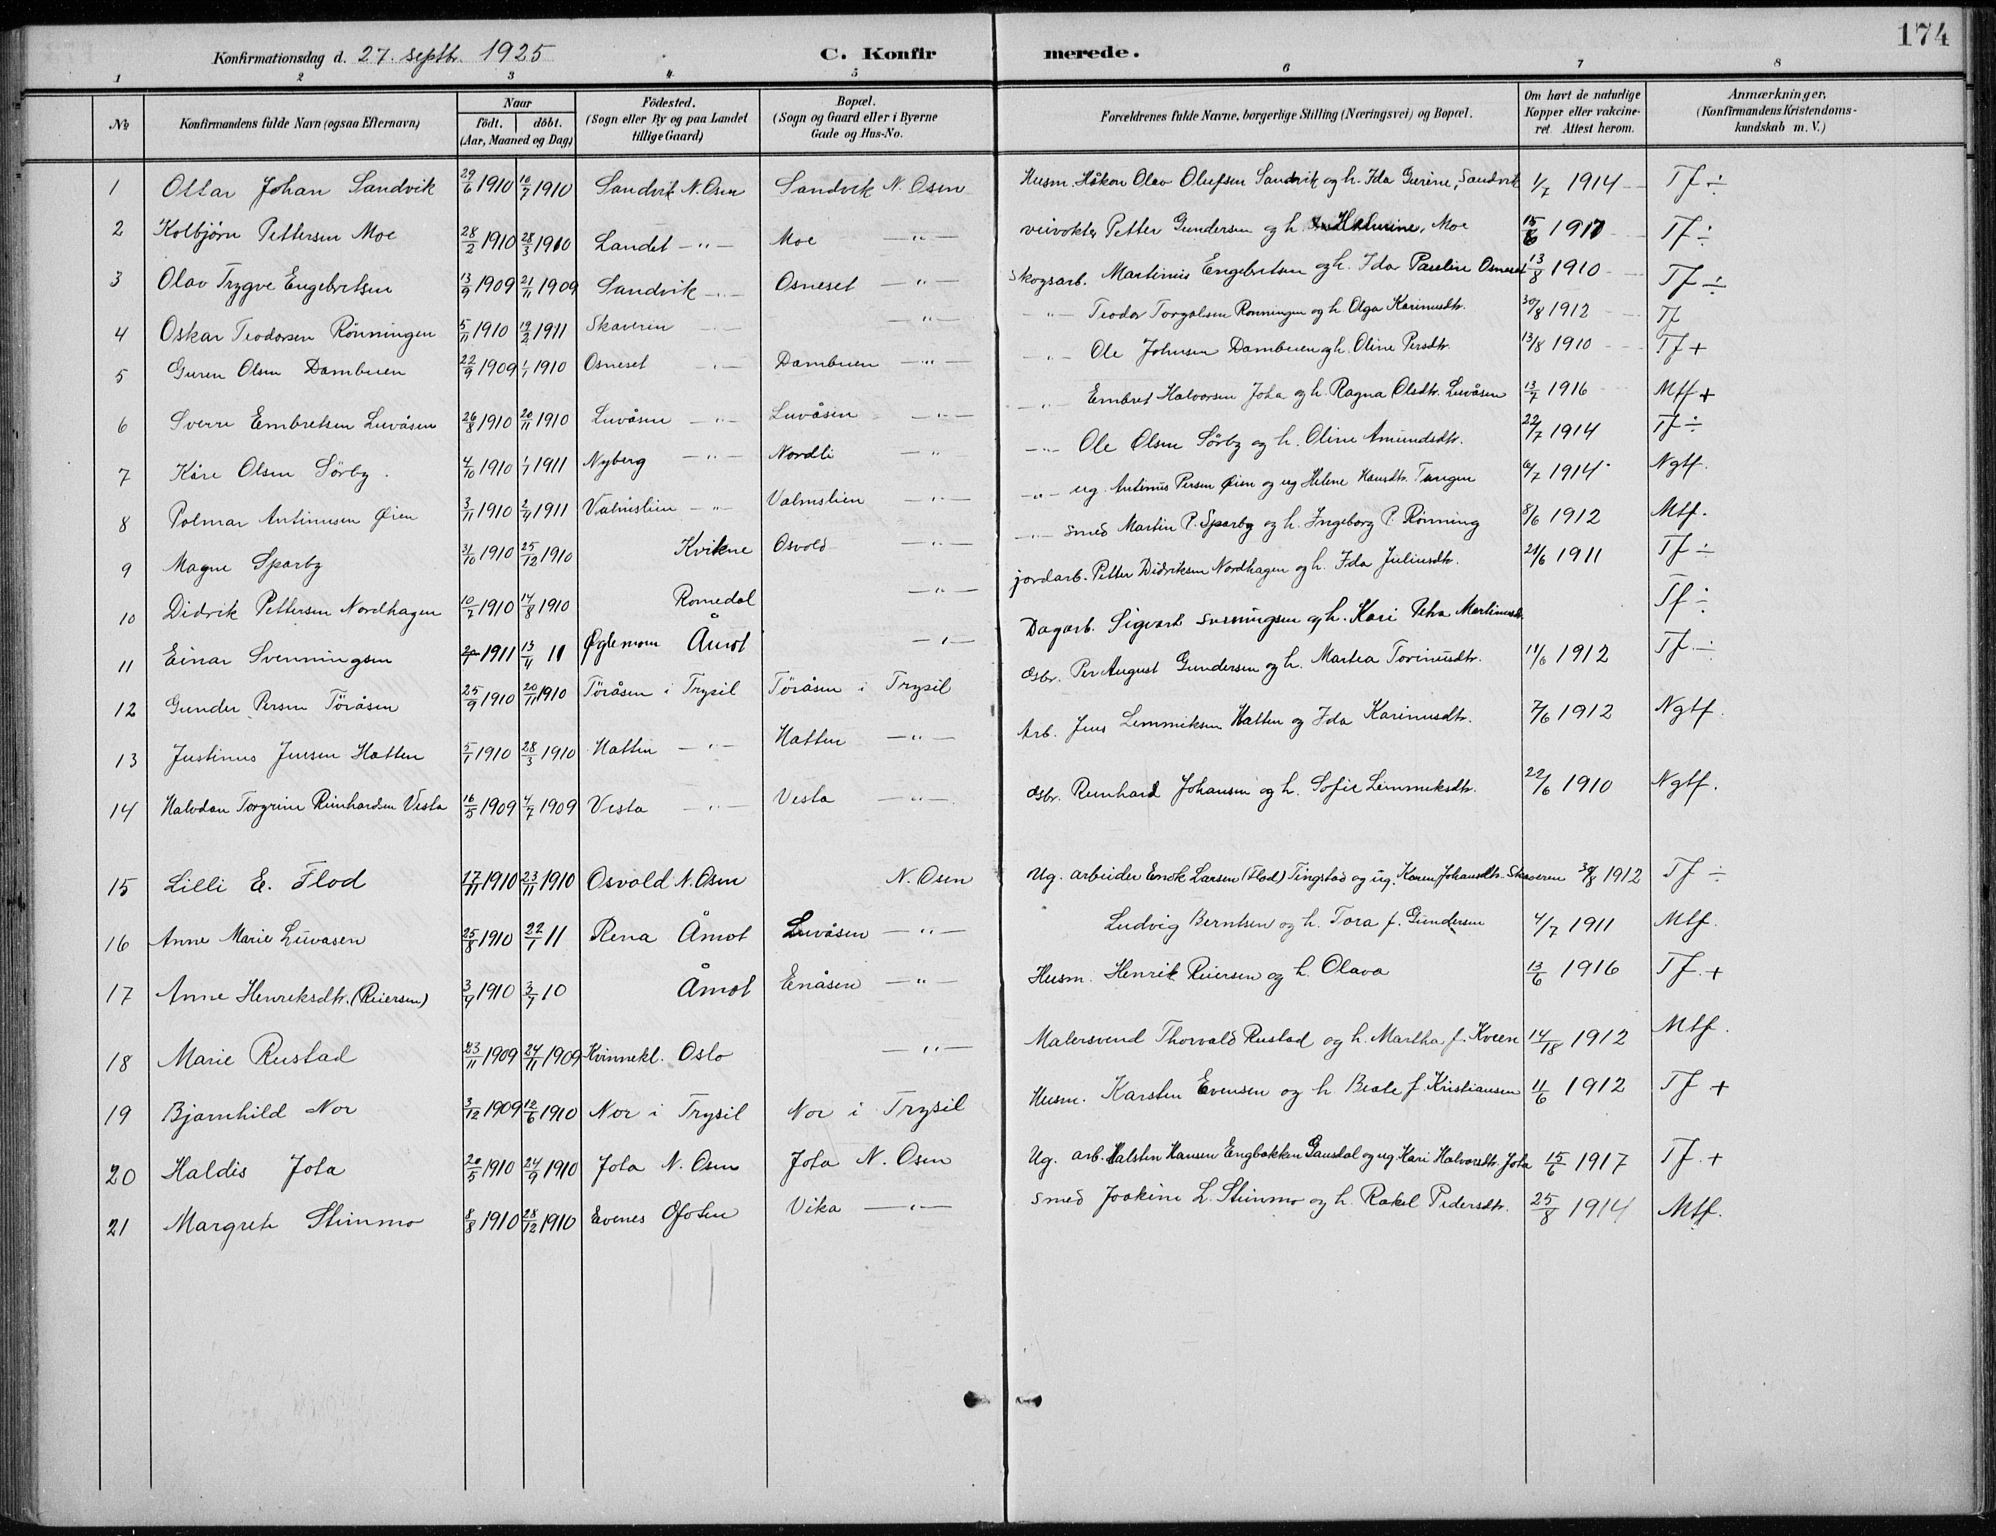 174
Konfirmationsdag d. 27. septbr. 1925 C. Konfirmerede.
1 2 3 4 5 6 7 8
No. Konfirmandens fulde Navn (ogsaa Efternavn) Naar födt. döbt. (Aar, Maaned og Dag) Födested. (Sogn eller By og paa Landet tillige Gaard) Bopæl. (Sogn og Gaard eller i Byerne Gade og Hus-No. Forældrenes fulde Navne, borgerlige Stilling (Næringsvei) og Bopæl. Om havt de naturlige Kopper eller vakcineret. Attest herom. Anmærkninger, (Konfirmandens Kristendomskundskab m. V.)
1 Ottar Johan Sandvik 29/6 1910 10/7 1910 Sandvik N. Osen Sandvik N. Osen Husm. Håkon Olav Olufsen Sandvik og h. Ida Gurine, Sandvik 1/7 1914 Tf ÷
2 Kolbjörn Pettersen Moe 28/2 1910 28/3 1910 Landet — " — Moe — " — veivokter Petter Gundersen og h. Moe 15/6 1917 Tf ÷
3 Olav Trygve Engebretsen 13/9 1909 21/11 1909 Sandvik — " — Osneset — " — Skogsarb. Martinus Engebretsen og h. Ida Pauline Osneset 13/8 1910 Tf ÷
4 Oskar Teodorsen Rönningen 5/11 1910 19/2 1911 Skaveren — " — — " — — " — Teodor Torgalsen Rönningen og h. Olga Karinusdtr. 30/8 1912 Tf
5 Guren Olsen Dambuen 22/9 1909 1/1 1910 Osneset — " — Dambuen — " — — " — Ole Johnsen Dambuen og h. Oline Persdtr. 13/8 1910 Tf +
6 Sverre Embretsen Luvåsen 26/8 1910 20/11 1910 Luvåsen — " — Luvåsen — " — — " — Embret Halvorsen Jota og h. Ragna Olsdtr. Luvåsen 13/7 1916 Mtf +
7 Kåre Olsen Sörby. 4/10 1910 1/1 1911 Nyberg — " — Nordli — " — " — Ole Olsen Sörby og h. Oline Amundsdtr. 22/7 1914 Tf ÷
8 Polmar Antinusen Øien 3/11 1910 2/4 1911 Valmslien — " — Valmslien — " — — " — ug. Antinus Persen Øien og ug Helene Hansdtr. Tangen 6/7 1914 Ngtf.
9 Magne Sparby 31/10 1910 25/12 1910 Kvikne Osvold — " — — " — Smed Martin P. Sparby og h. Ingeborg P. Rönning 8/6 1912 Mtf.
10 Didrik Pettersen Nordhagen 10/7 1910 14/8 1910 Romedal — " — jordarb. Petter Didriksen Nordhagen og h. Ida Juliusdtr. 21/6 1911 Tf ÷
11 Einar Svenningsen 1911 13/4 11 Øglemom Åmot — " — Dagarb. Sigvart Svenningsen og h. Kari Petra Martinusdtr. Tf ÷
12 Gunder Persen Töråsen 25/9 1910 20/11 1910 Töråsen i Trysil Töråsen i Trysil Gsbr. Per August Gundersen og h. Martea Torinusdtr. 11/6 1912 Tf. ÷
13 Justinus Jensen Hatten 5/1 1910 28/3 1910 Hatten — " — Hatten — " — Arb. Jens Lemmiksen Hatten og Ida Karinusdtr. 7/6 1912 Ngtf.
14 Halvdan Torgrim Reinhardsen Vesta 16/5 1909 4/7 1909 Vesta — " — Vesta — " — Gsbr. Reinhard Johansen og h. Sofie Lemmiksdtr. 22/6 1910 Ngtf.
15 Lilli E. Flod 17/11 1910 23/11 1910 Osvold N. Osen N. Osen Ug. arbeider Enok Larsen (Flod) Tingstad og ug. Karen Johansdtr. Skaveren 30/8 1912 Tf ÷
16 Anne Marie Luvasen 25/8 1910 22/1 11 Rena Åmot Luvåsen — " — Ludvig Berntsen og h. Tora f. Gundersen 4/7 1911 Mtf.
17 Anne Henriksdtr. (Reiersen) 3/9 1910 3/7 10 Åmot Enåsen — " — Husm. Henrik Reiersen og h. Olava 13/6 1916 Tf. +
18 Marie Rustad 23/11 1909 24/11 1909 Kvinnekl. Oslo — " — Malersvend Thorvald Rustad og h. Martha f. Kveen 14/18 1912 Mtf.
19 Bjarnhild Nor 3/12 1909 12/6 1910 Nor i Trysil Nor i Trysil Husm. Karsten Evensen og h Beate f. Kristiansen 11/6 1912 Tf +
20 Haldis Jota 20/5 1910 24/9 1910 Jota N. Osen Jota N. Osen Ug. arb. Halstin Hansen Engbakken Gausdal og ug Kari Halvorsdtr. Jota 15/6 1917 Tf. +
21 Margreth Stimmo 8/8 1910 28/12 1910 Evenes Ofoten Vika — " — Smed Joakim L. Stimmo og h. Rakel Pedersdtr. 25/8 1914 Mtf.